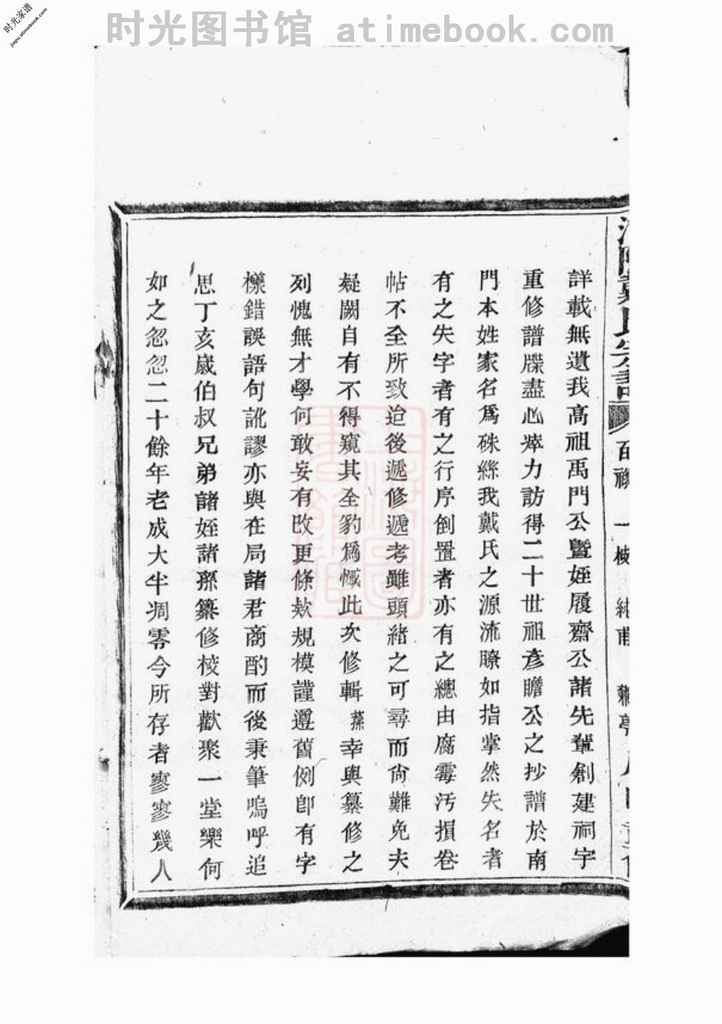 时光图书馆 atimebook.com
时光家谱
jiapu.atimebook.com
詳載無遺我高祖禹門公曁姪履齋公諸先輩創建祠宇
重修譜牒盡心瘁力訪得二十世祖彥瞻公之抄譜於南
門本姓家名爲硃絲我戴氏之源流瞭如指掌然失名者
有之失字者有之行序倒置者亦有之總由腐霉汚損卷
帖不全所致迨後遞修遞考雖頭緒之可尋而尙難免夫
疑闕自有不得窺其全豹爲憾此次修輯蓀幸與纂修之
列愧無才學何敢妄有改更條欵規模謹遵舊例卽有字
樣錯誤語句訛謬亦與在局諸君商酌而後秉筆嗚呼追
思丁亥歲伯叔兄弟諸姪諸孫纂修校對歡聚一堂樂何
如之忽忽二十餘年老成大半凋零今所存者寥寥幾人